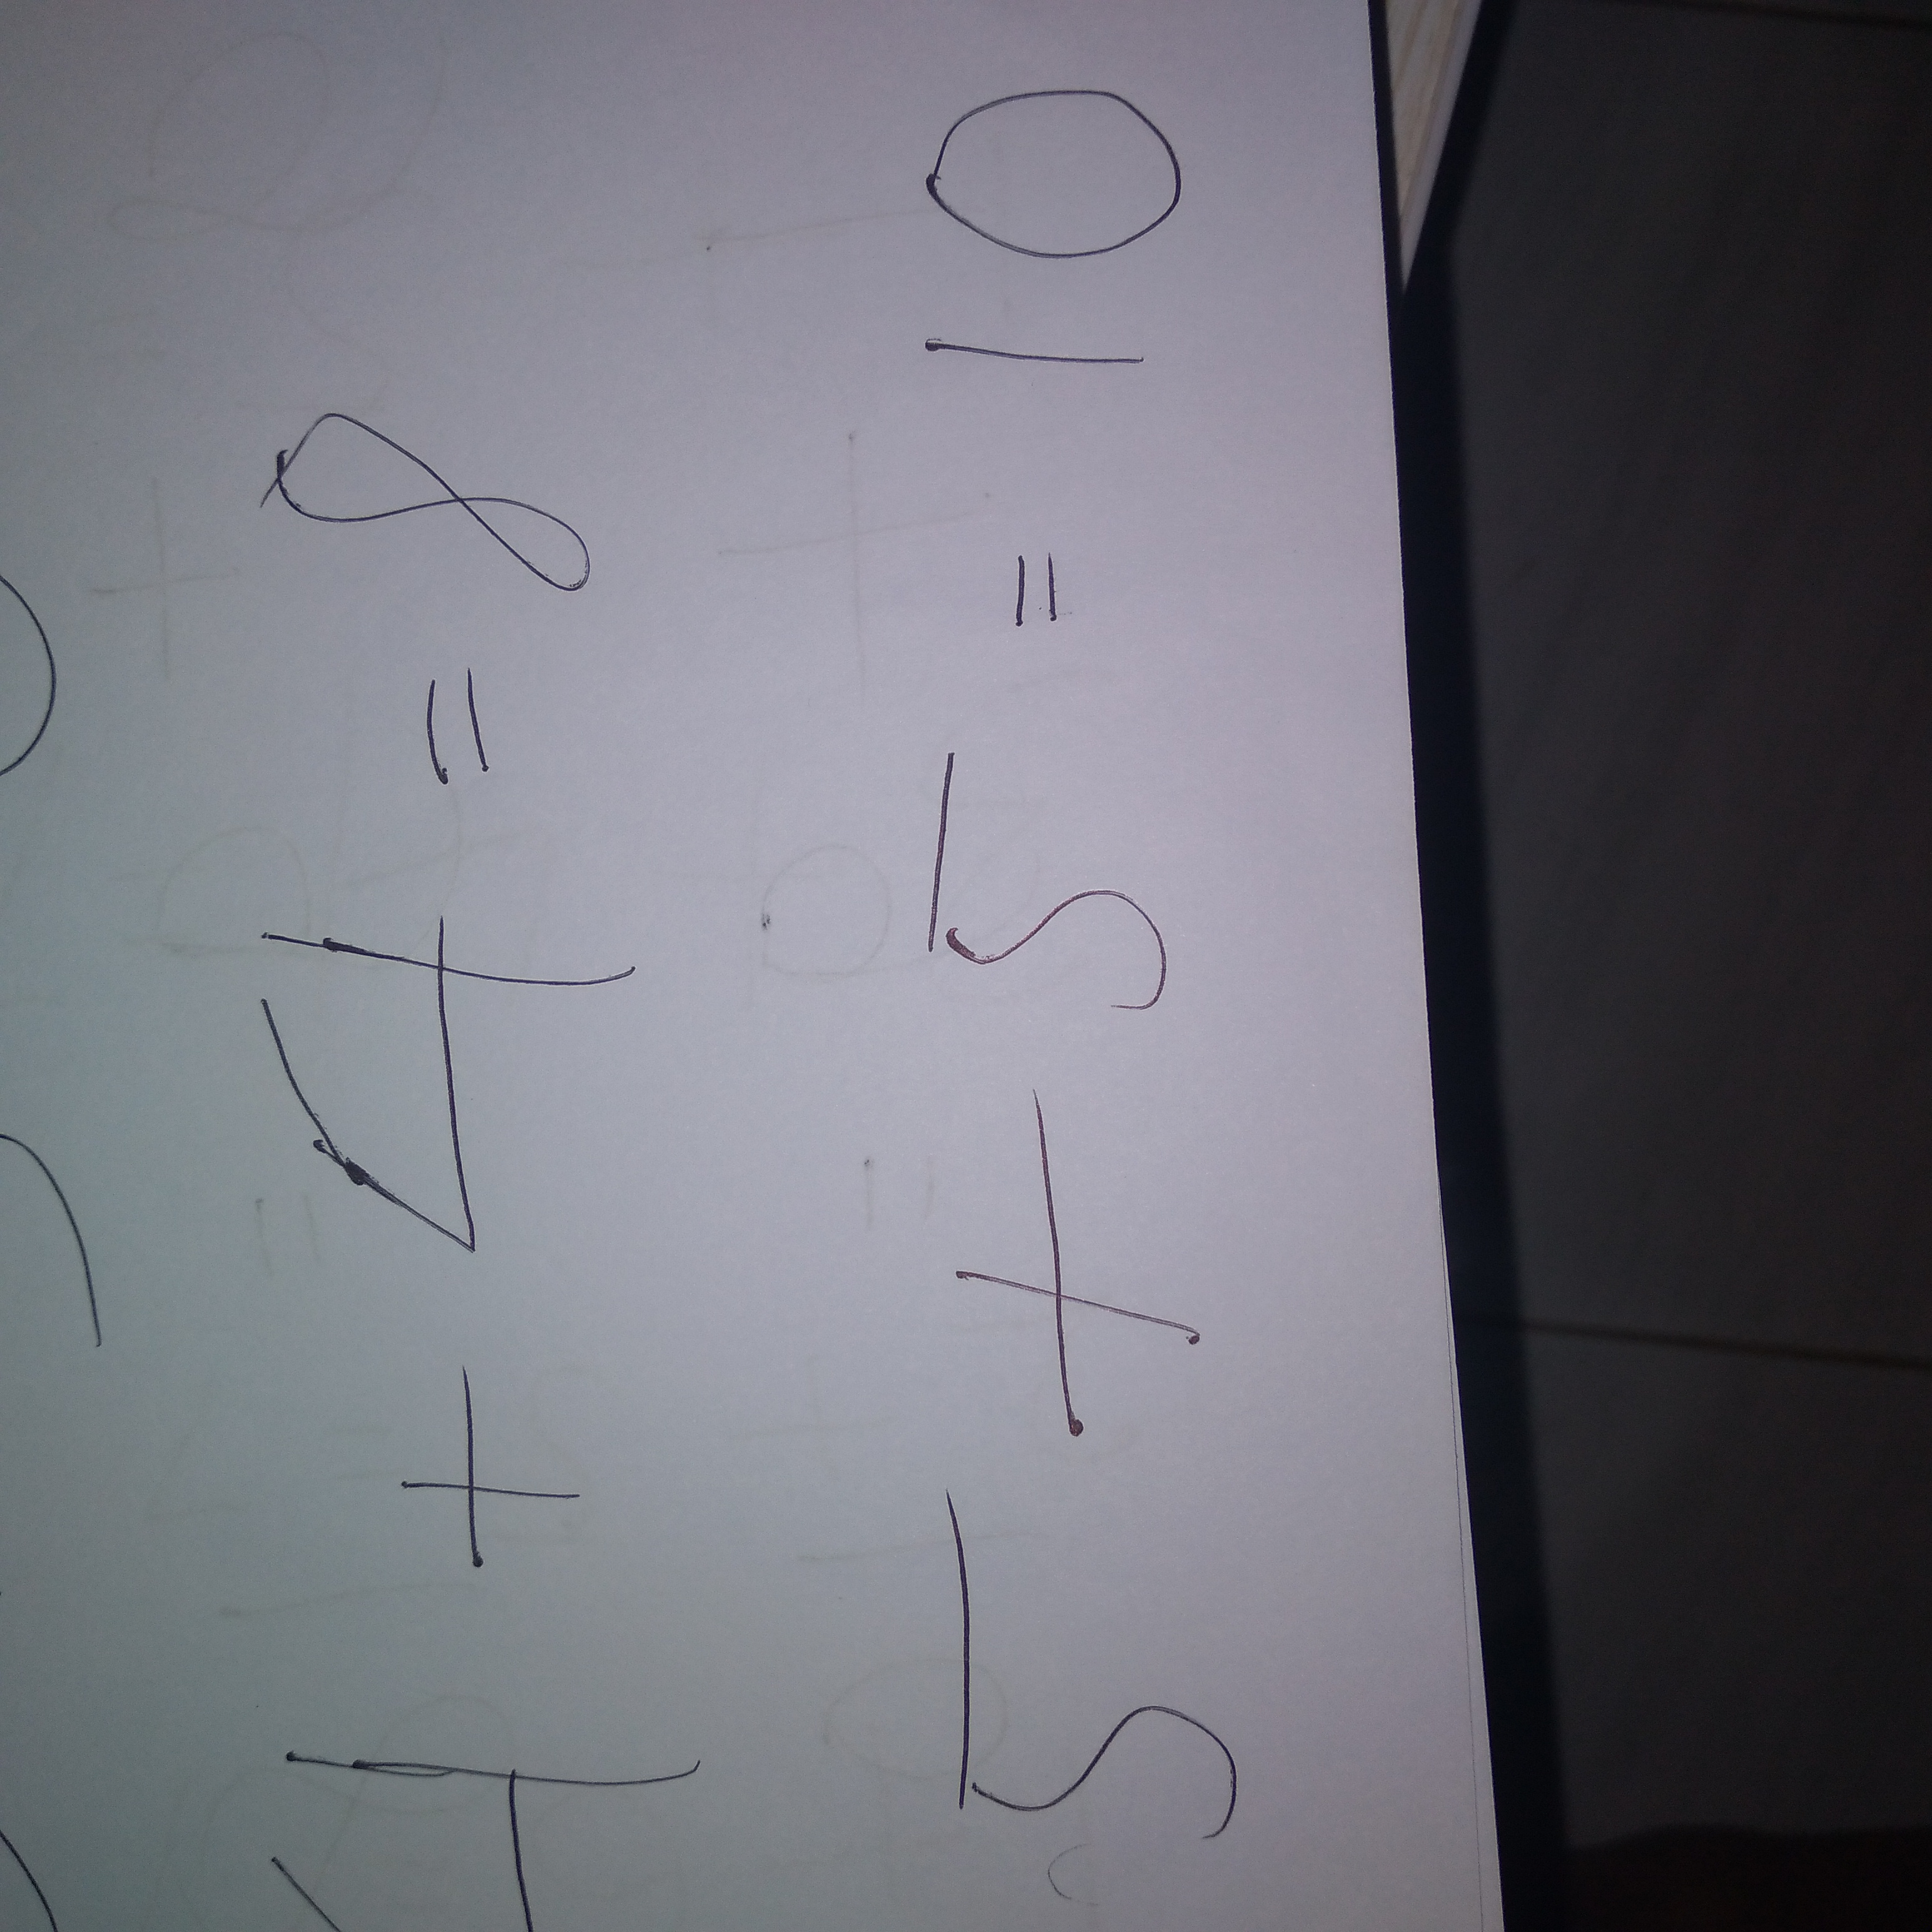 4 + 4 = 8
5 + 5 = 10